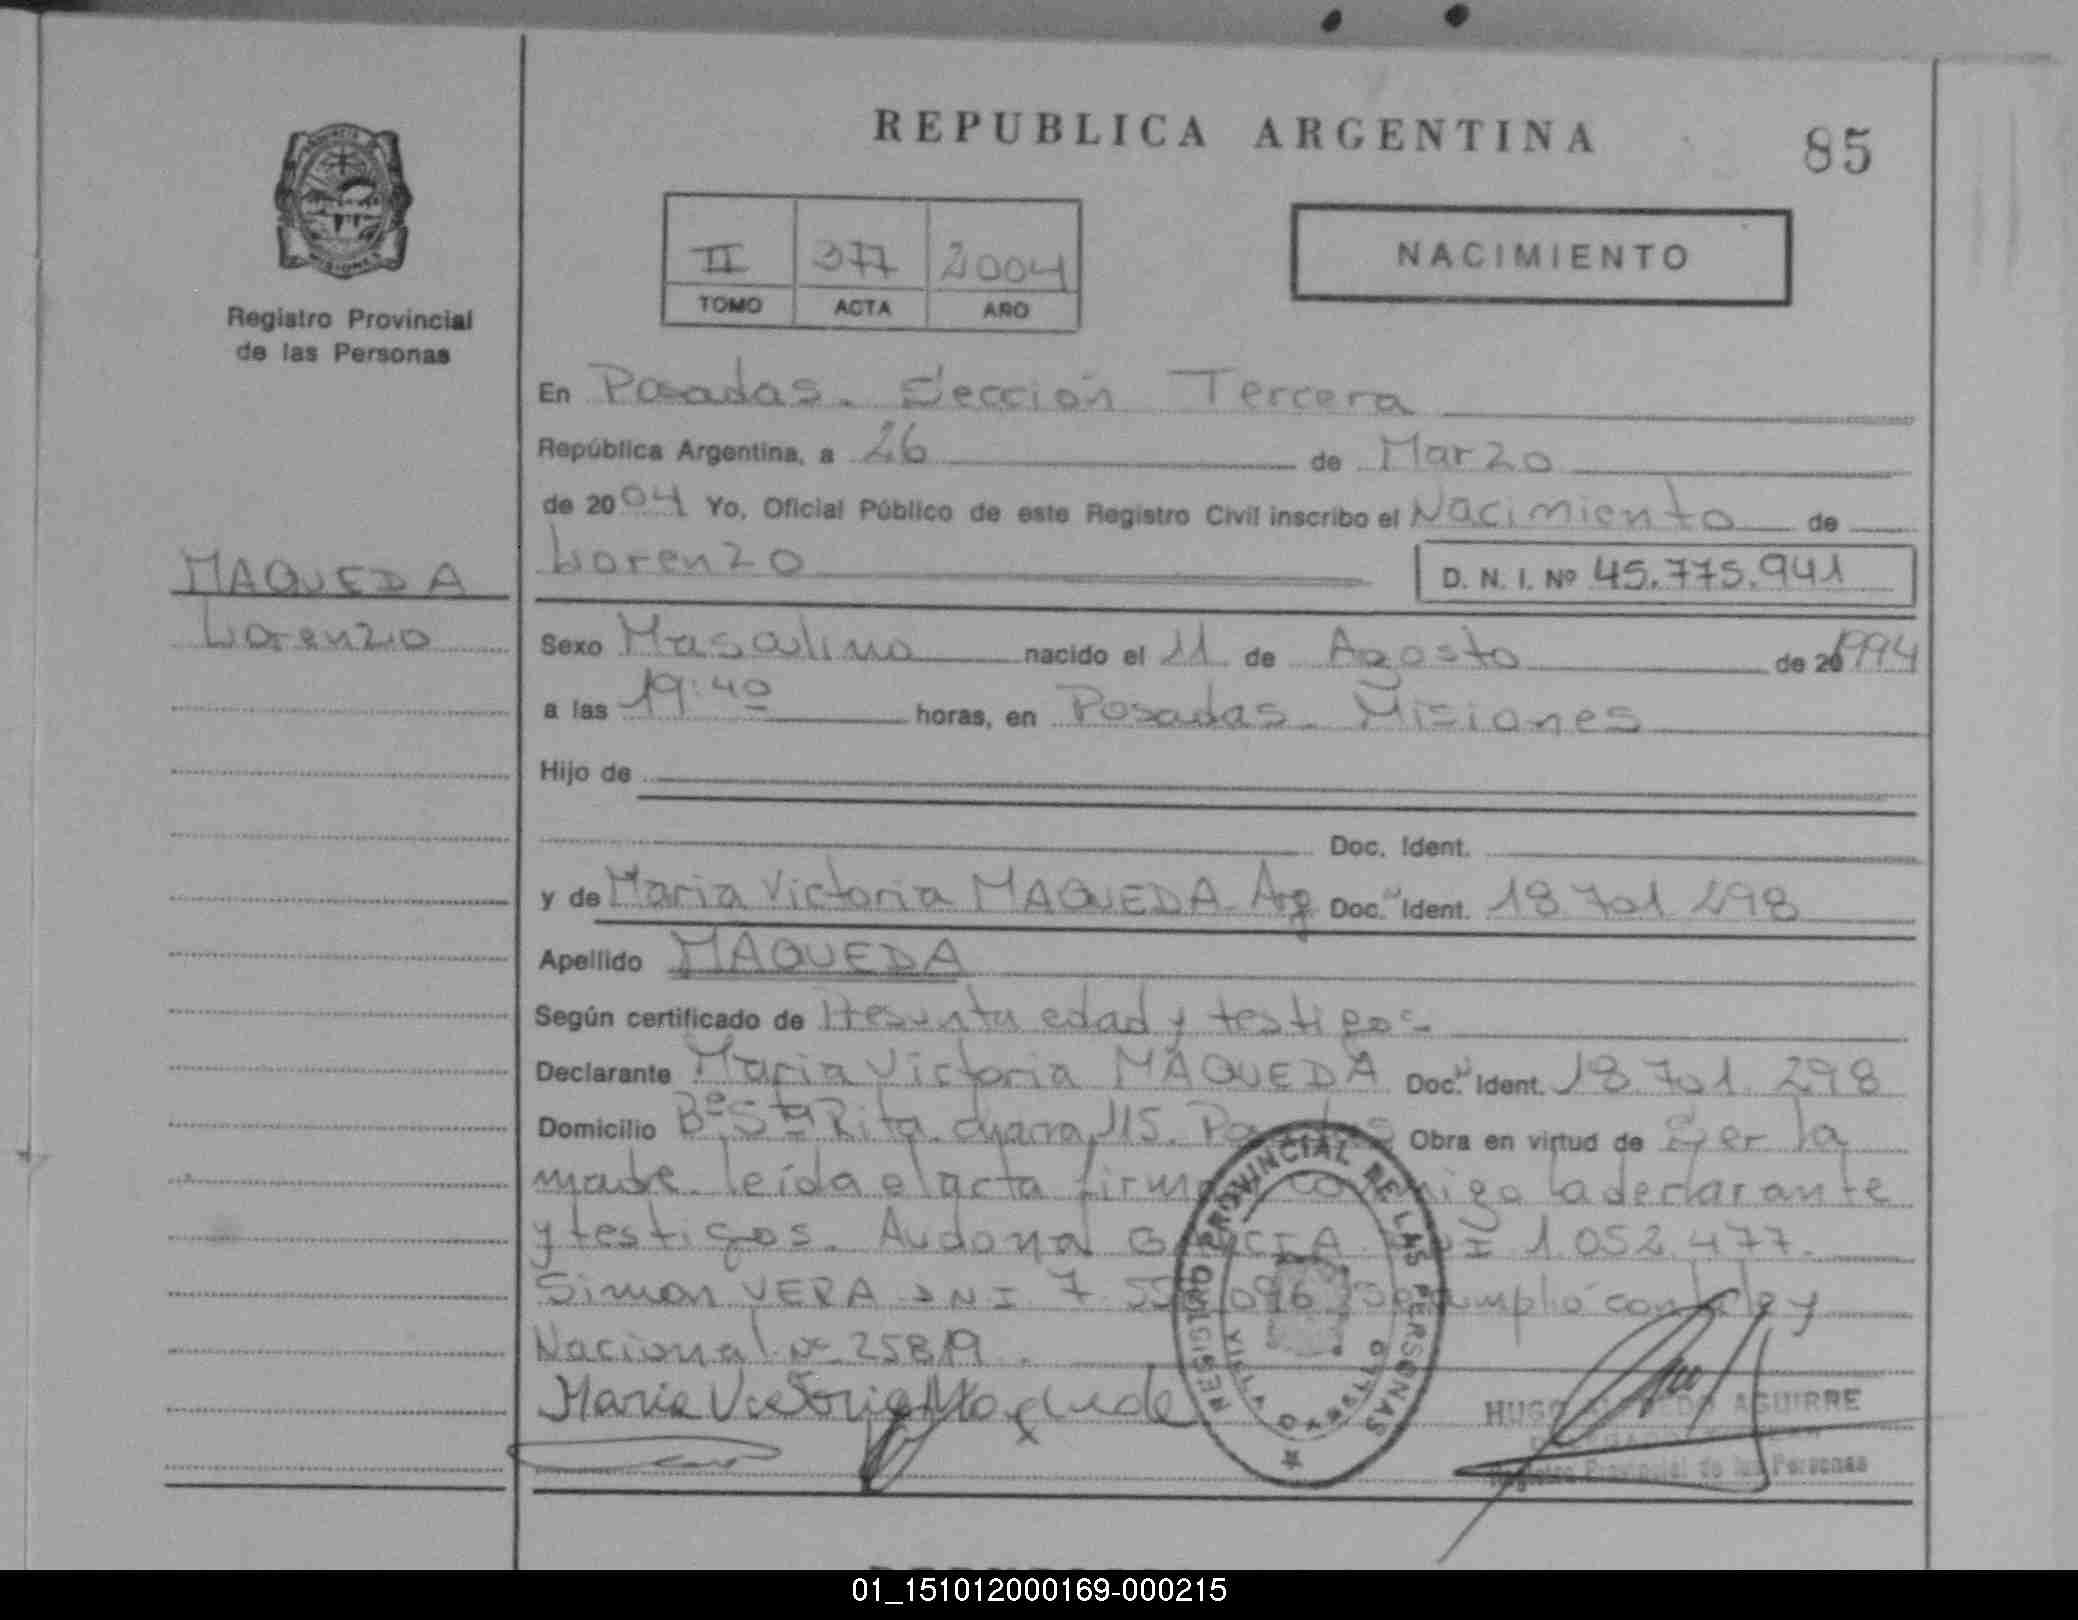 REPUBLICA ARGENTINA
85
PROVINCIA
MISIONES
Registro Provincial
de las Personas
II 377 2004
TOMO ACTA AÑO
NACIMIENTO
En Posadas. Sección Tercera
República Argentina, a 26 de Marzo
de 2004 Yo, Oficial Público de este Registro Civil inscribo el Nacimiento de
Lorenzo
D. N. I. Nº 45.775.941
MAQUEDA
Lorenzo
Sexo Masculino nacido el 11 de Agosto de 20 1994
a las 19:40 horas, en Posadas. Misiones
Hijo de
Doc. Ident.
y de Maria Victoria MAQUEDA. Arg Doc. Ident. 18.701.298
Apellido MAQUEDA
Según certificado de Presunta edad y testigos.
Declarante Maria Victoria MAQUEDA Doc. Ident. 18.701.298
Domicilio Bº Sta Rita. chacra 115. Posadas Obra en virtud de Ser la
madre. leída el acta firma conmigo la declarante
y testigos. Audona GARCIA DNI 1.052.477.
Simon VERA DNI 7.55 096 Se cumplió con la ley
Nacional Nº 25819.
Maria Victoria Maqueda
REGISTRO PROVINCIAL DE LAS PERSONAS
HUGO AGUIRRE
Registro Provincial de las Personas
01_151012000169-000215